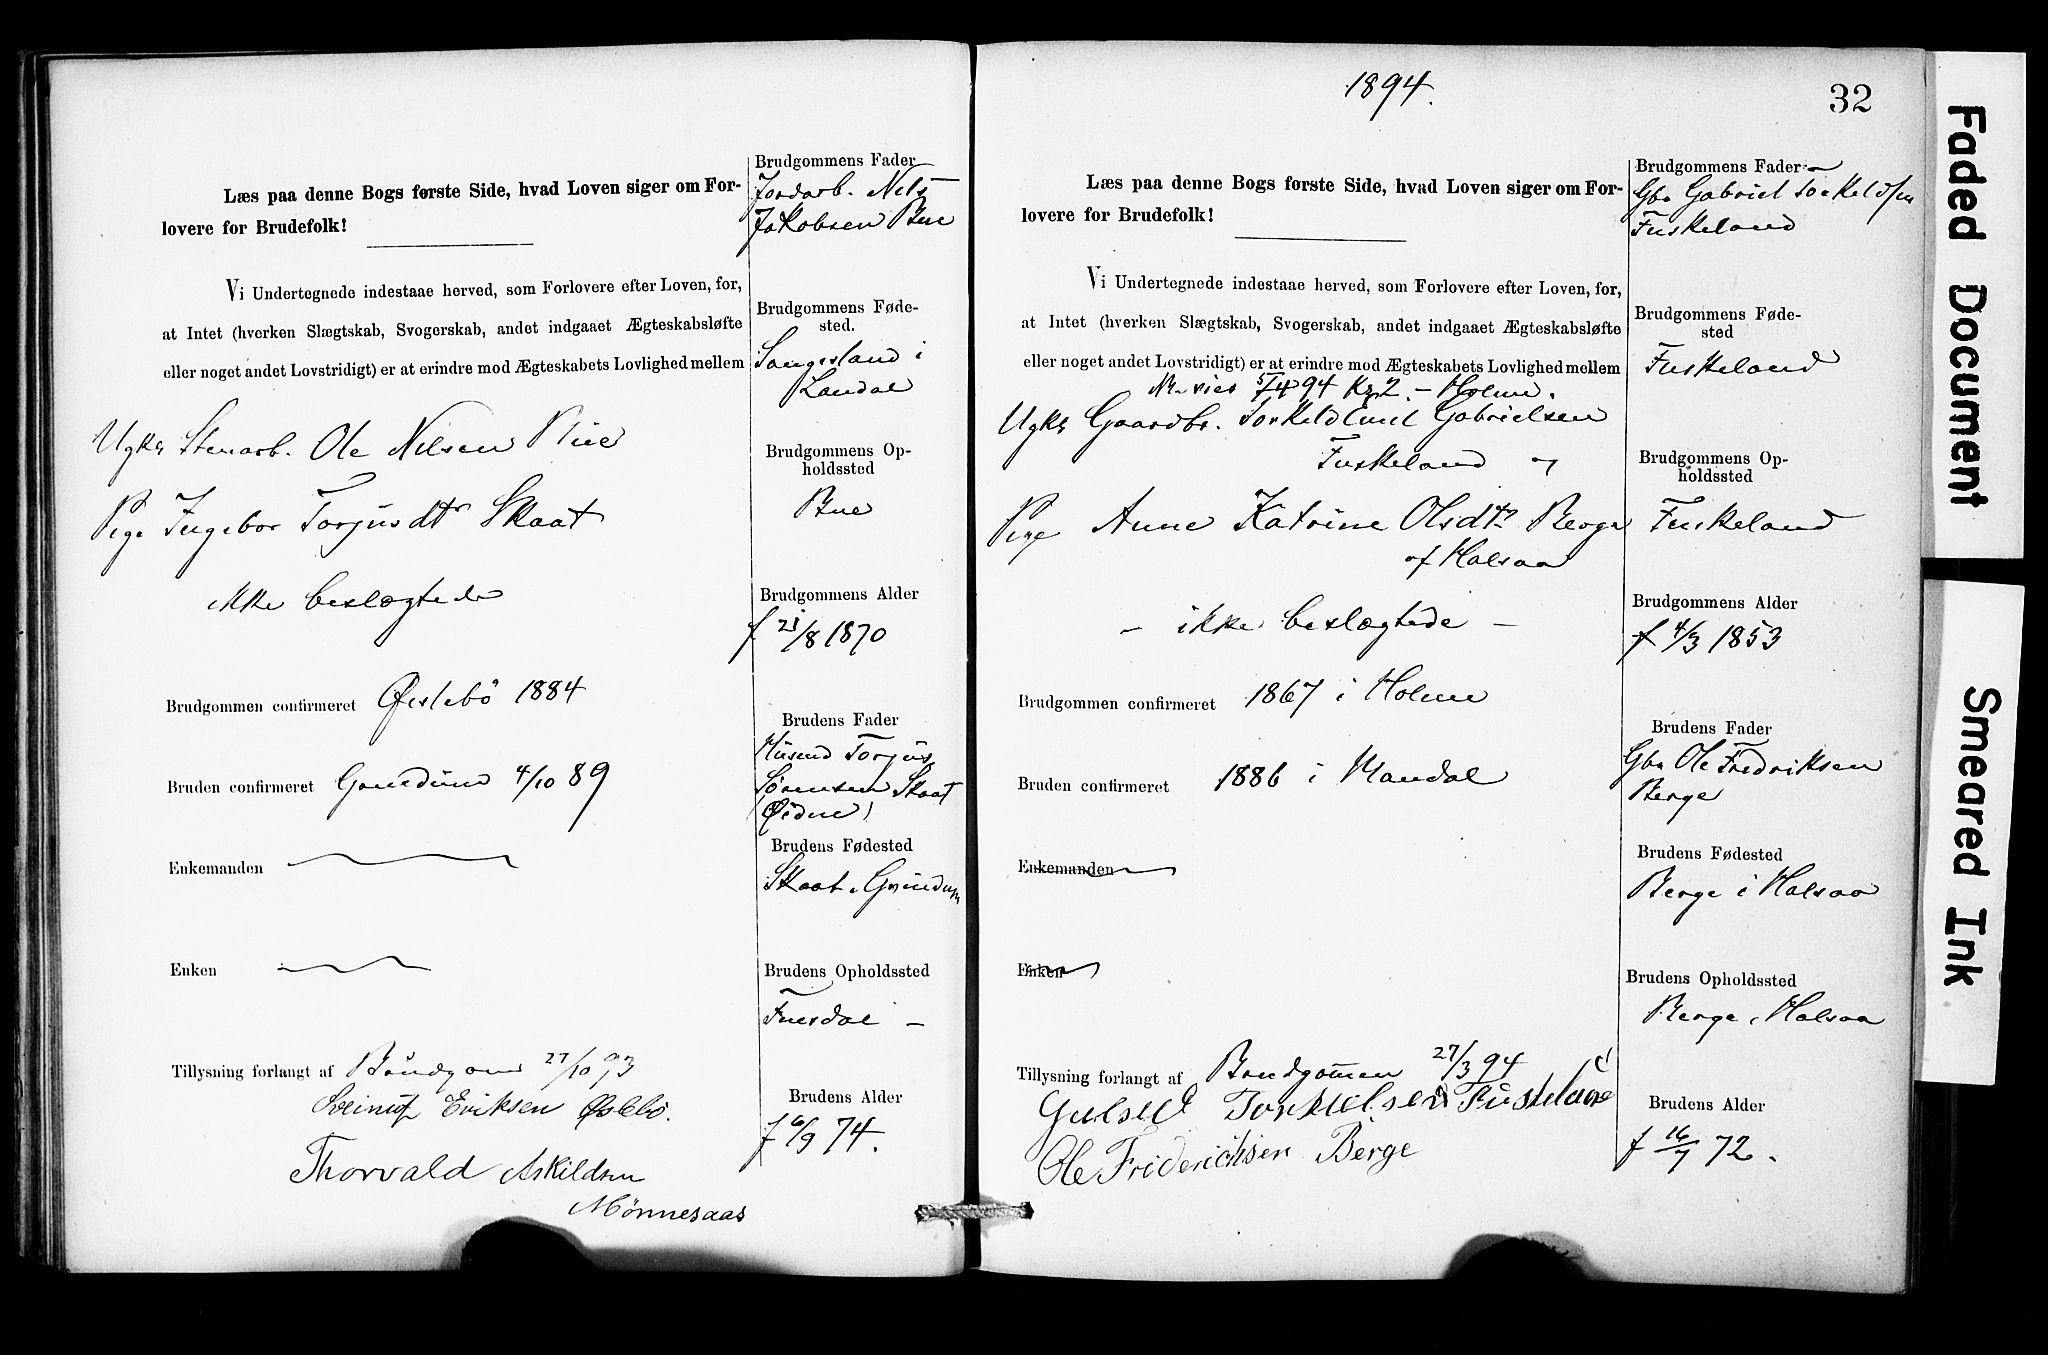 Læs paa denne Bogs første Side, hvad Loven siger om For-
lovere for Brudefolk!
Vi Undertegnede indestaae herved, som Forlovere efter Loven, for,
at Intet (hverken Slægtskab, Svogerskab, andet indgaaet Ægteskabsløfte
eller noget andet Lovstridigt) er at erindre mod Ægteskabets Lovlighed mellem
Ugkr Stenarb. Ole Nilsen Bue
Pige Ingebor Torjusdtr Skaat
ikke beslægtede
Brudgommen confirmeret Øislebö 1884
Bruden confirmeret 4/10 89
Enkemanden
Enken
Tillysning forlangt af 27/10 93
Eriksen Øslebö.
Thorvald Askildsen
Mønnesaas
Brudgommens Fader
Jordarb. Nils
Jakobsen Bue
Brudgommens Føde-
sted.
i
Brudgommens Op-
holdssted
Bue
Brudgommens Alder
f /8 1870
Brudens Fader
Husmd Torjus
Sørensen Skaat
(Øidne)
Brudens Fødested
Skaat,
Brudens Opholdssted
Brudens Alder
f 6/9 74.
1894.
32
Læs paa denne Bogs første Side, hvad Loven siger om For-
lovere for Brudefolk!
Vi Undertegnede indestaae herved, som Forlovere efter Loven, for,
at Intet (hverken Slægtskab, Svogerskab, andet indgaaet Ægteskabsløfte
eller noget andet Lovstridigt) er at erindre mod Ægteskabets Lovlighed mellem
5/4 94 - Holme.
Ugkr Gaardbr. Torkeld Emil Gabrielsen
Fuskeland og
Pige Anne Katrine Olsdtr Berge
af Halsaa
- ikke beslægtede -
Brudgommen confirmeret 1867 i Holme
Bruden confirmeret 1886 i Mandal
Enkemanden
Enken
Tillysning forlangt af Brudgommen 27/3 94
Ole Friderichsen Berge
Brudgommens Fader
Gbr Gabriel Torkeldsen
Fuskeland
Brudgommens Føde-
sted
Fuskeland
Brudgommens Op-
holdssted
Fuskeland
Brudgommens Alder
f 4/3 1853
Brudens Fader
Gbr Ole Fredriksen
Berge
Brudens Fødested
Berge i Halsaa
Brudens Opholdssted
Berge, Halsaa
Brudens Alder
f 16/7 72.
Faded Document
Smeared Ink